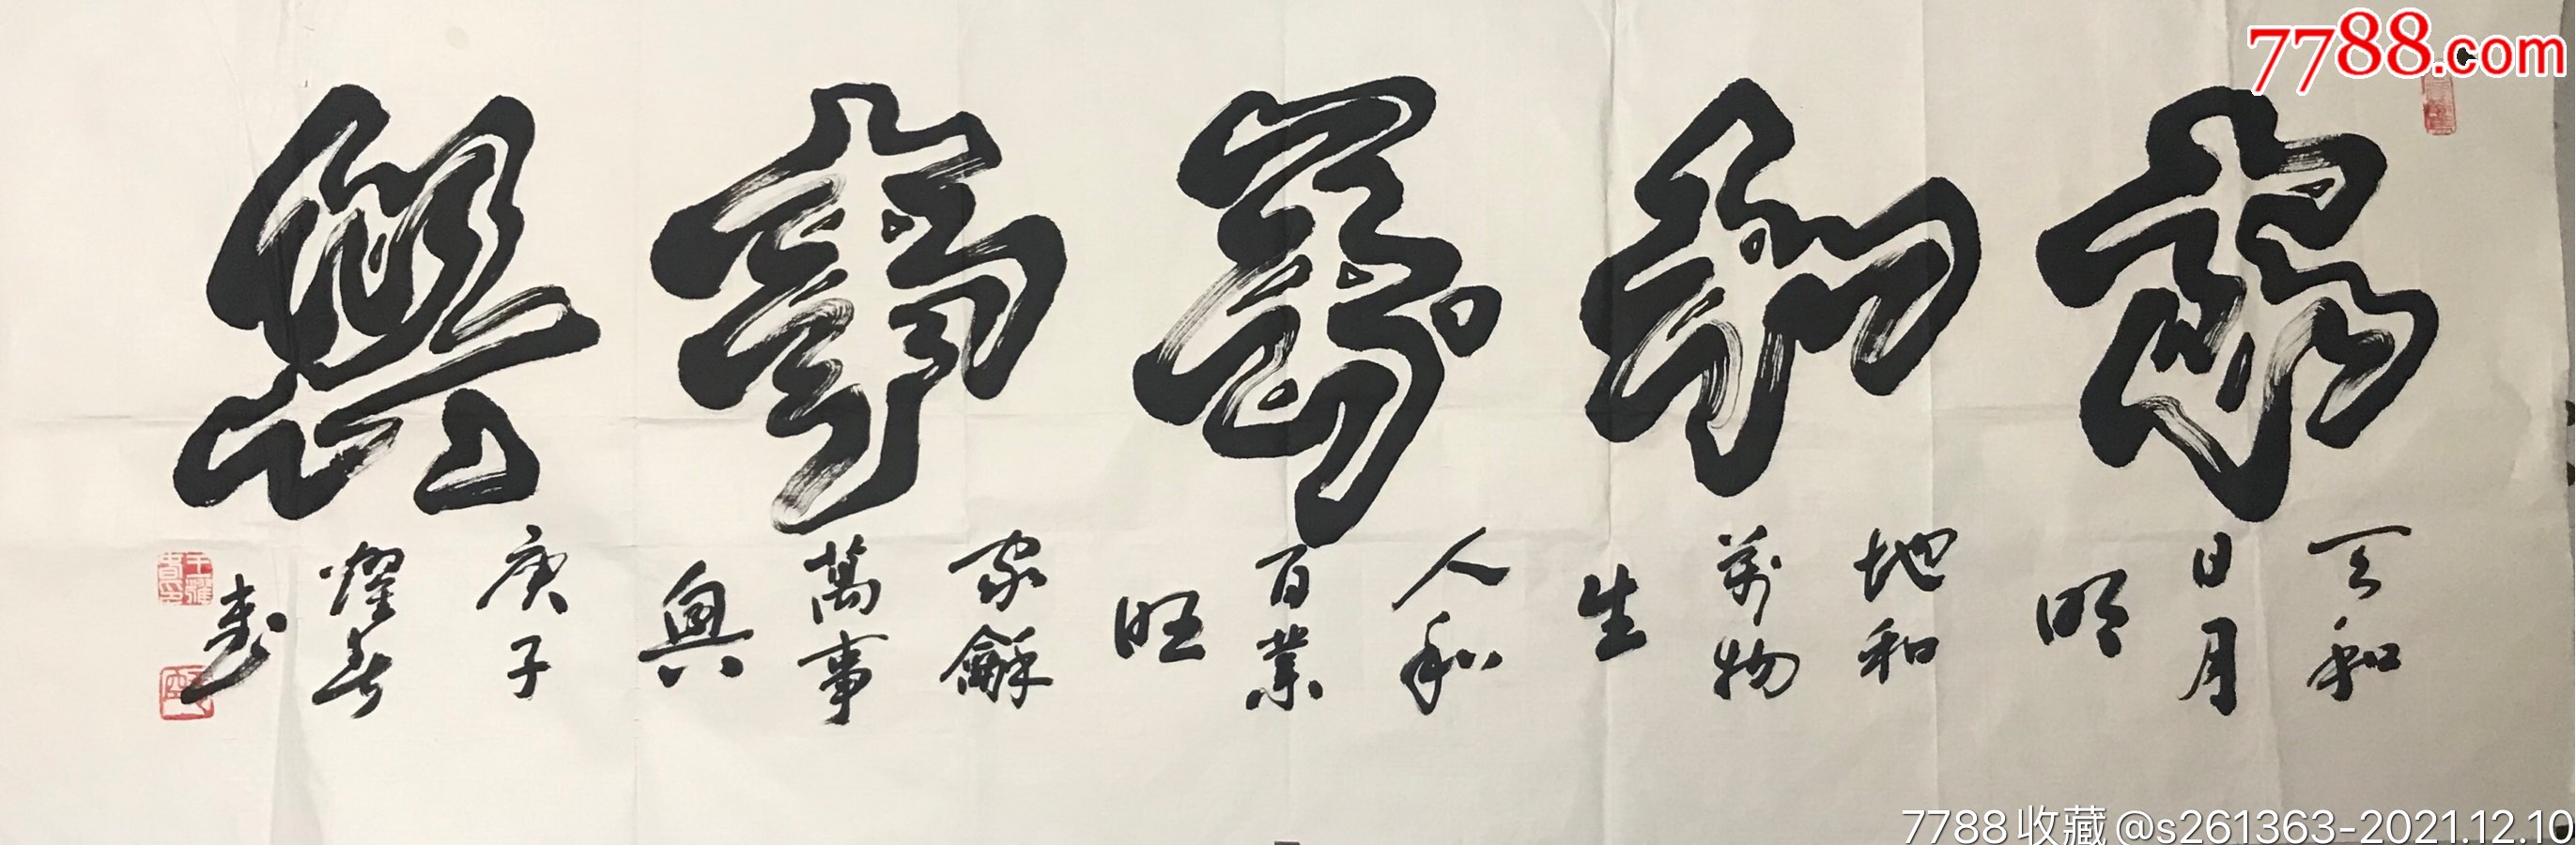 家和萬事興
天和
日月
明
地和
萬物
生
人和
百業
旺
家龢
萬事
興
庚子
耀春
書
7788.com
7788收藏@s261363-2021.12.10